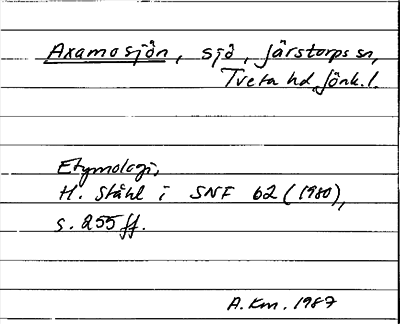 Axamosjön, sjö, Järstorps sn,
Tveta hd Jönk. l.
Etymologi;
H. Ståhl i SNF 62 (1980),
s. 255 ff.
A. Km. 1987